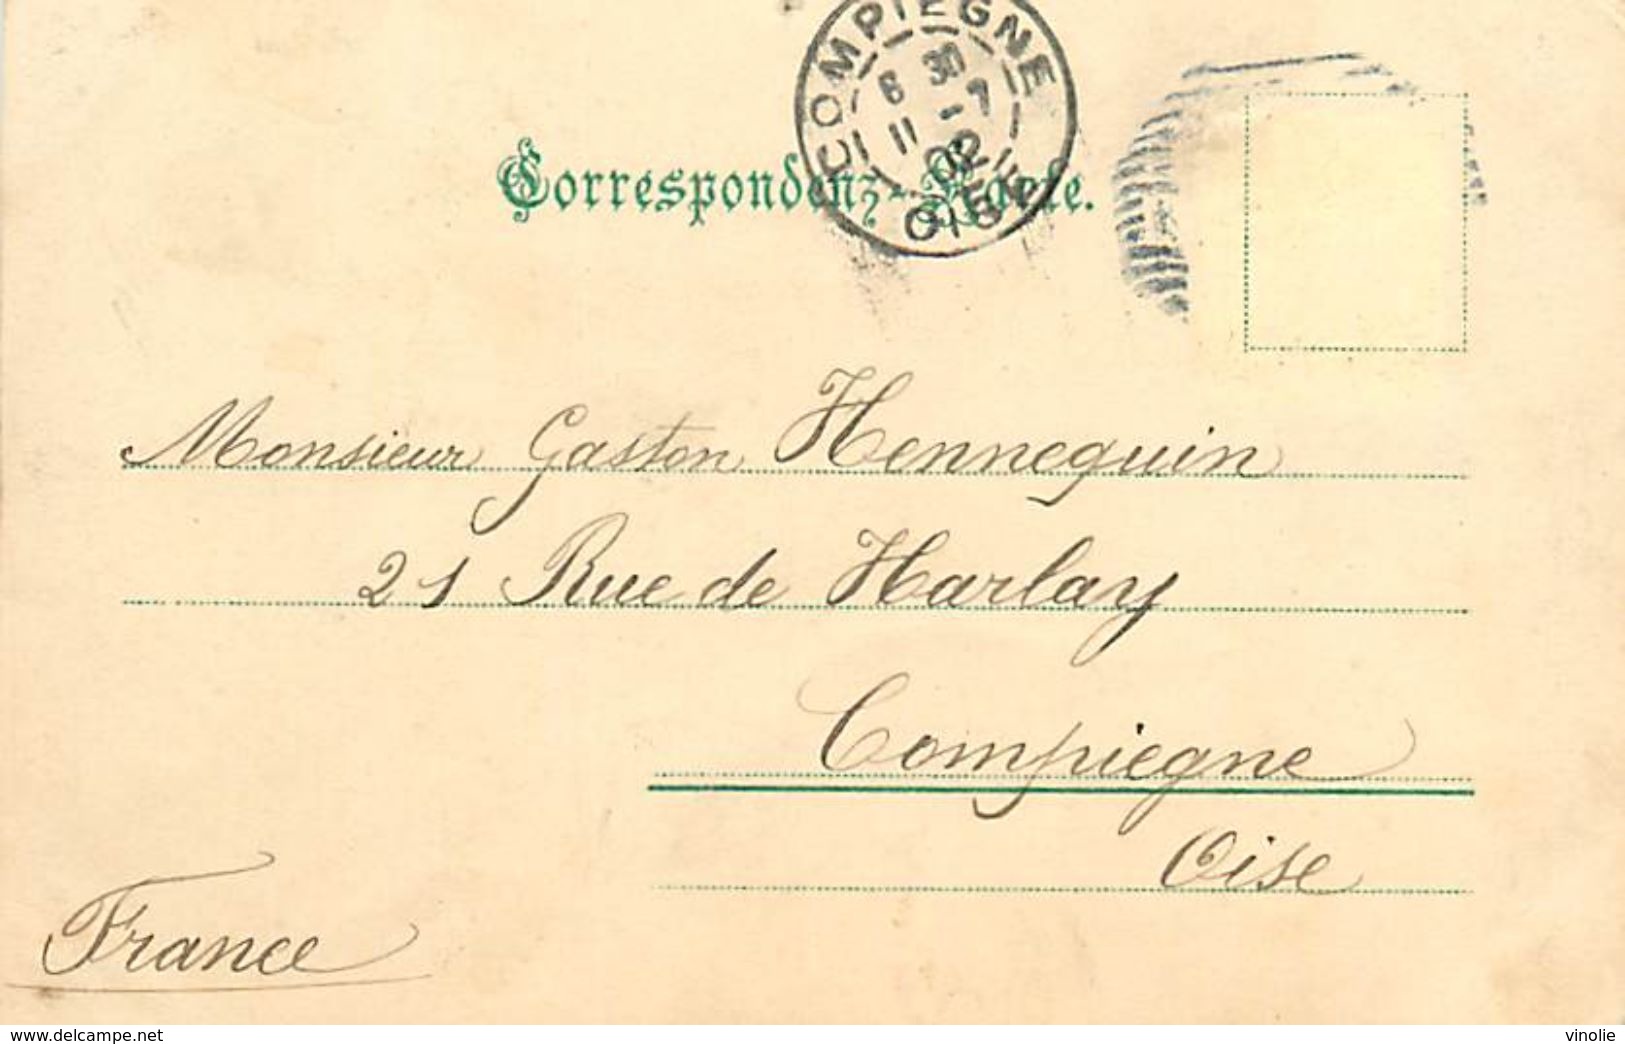 COMPIEGNE
6 30
11 -7
02
OISE
Correspondenz-Karte.
Monsieur Gaston Hennequin
21 Rue de Harlay
Compiegne
Oise
France
www.delcampe.net
vinolie